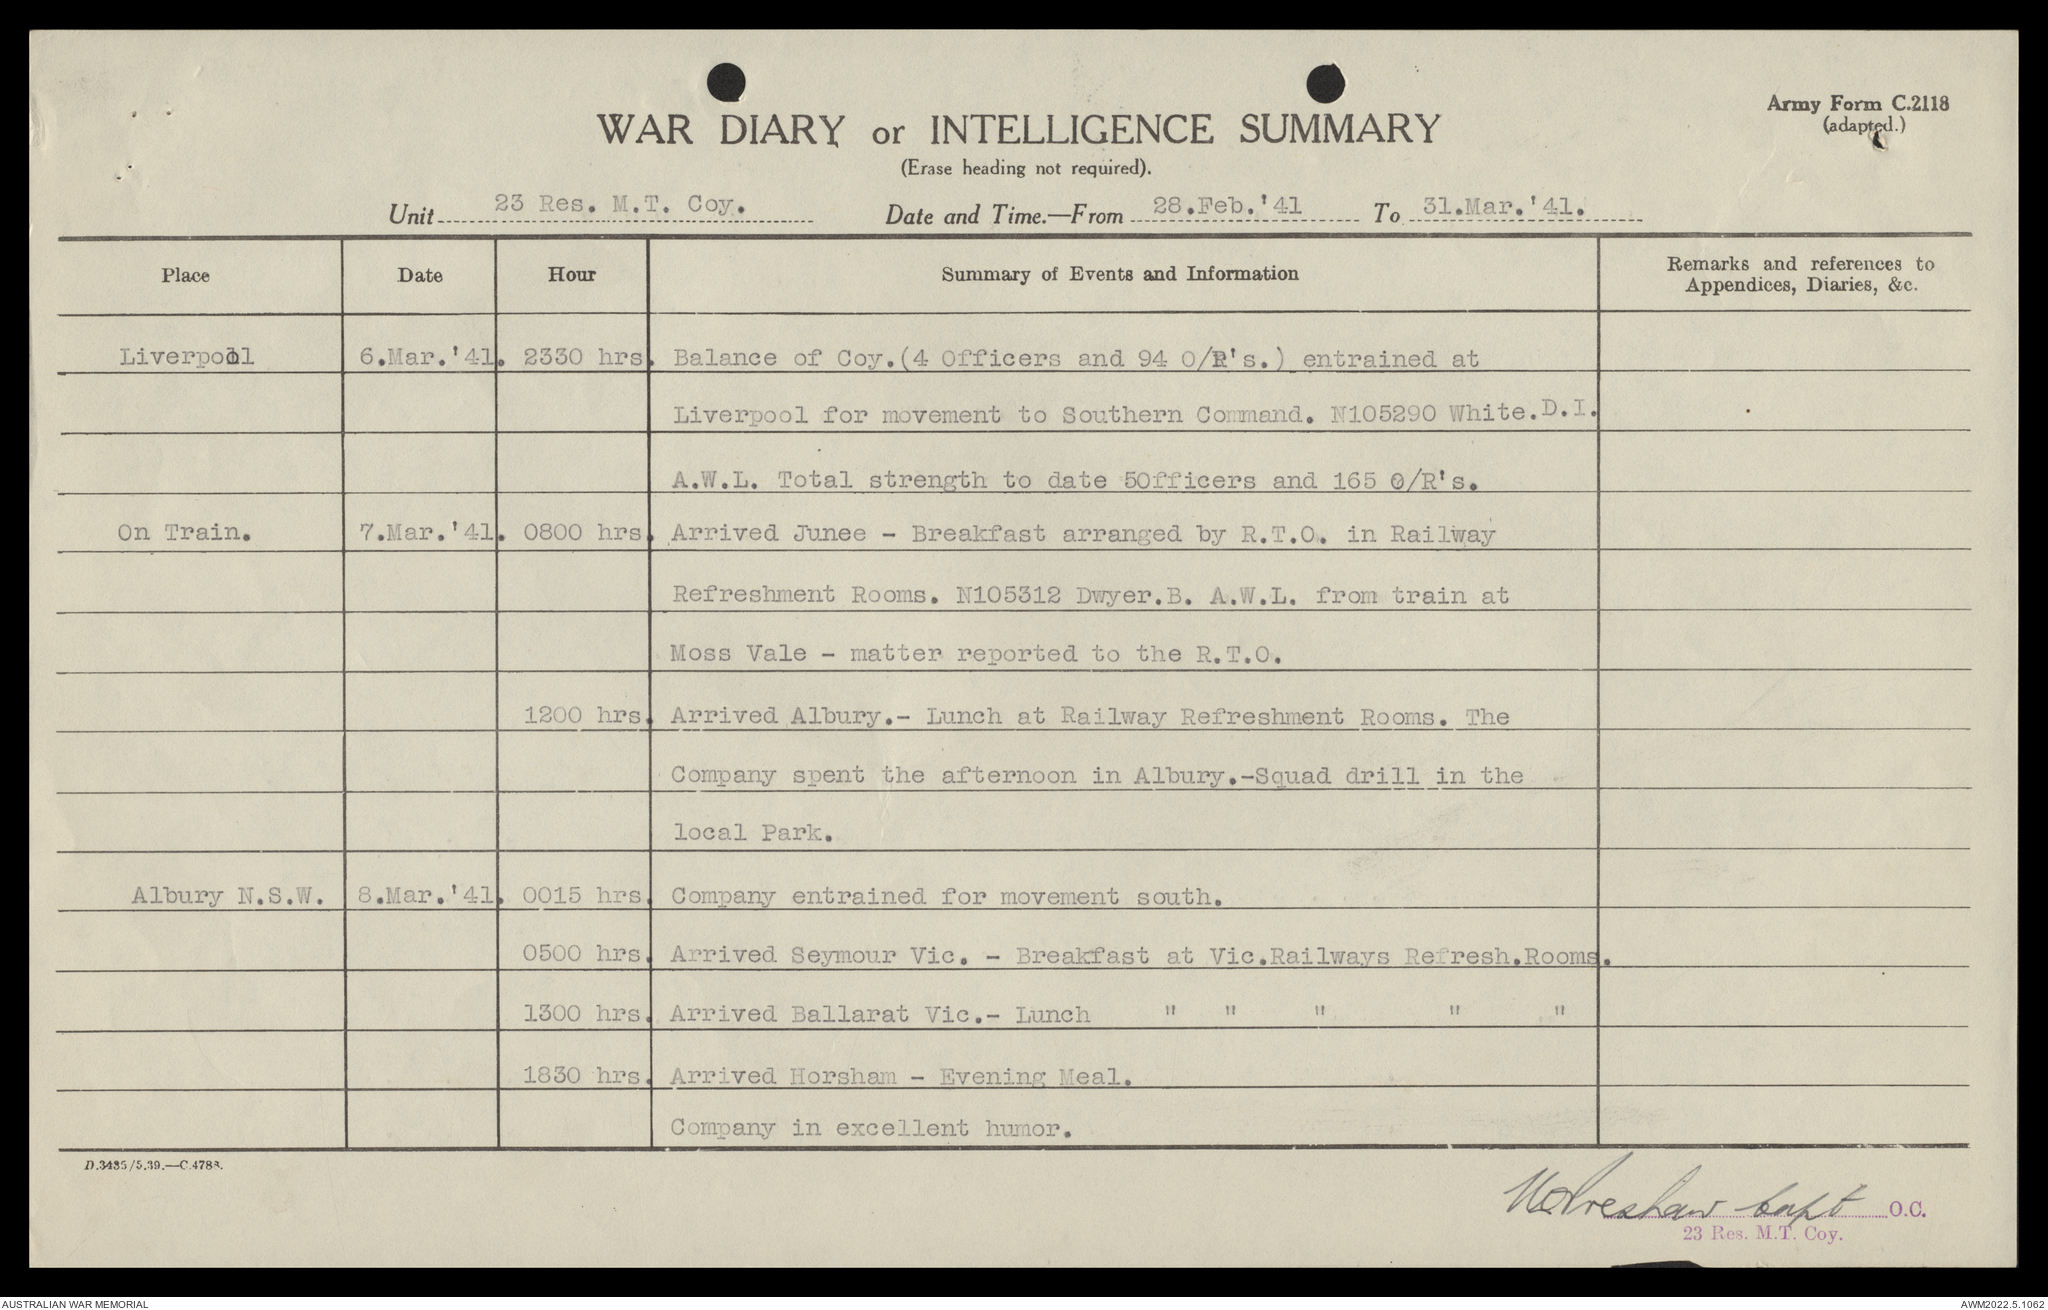 Army Form C.2118
(adapted.)
WAR DIARY or INTELLIGENCE SUMMARY
(Erase heading not required).
Unit 23 Res. M.T. Coy. Date and Time.—From 28.Feb.'41 To 31.Mar.'41.
Place Date Hour Summary of Events and Information Remarks and references to
Appendices, Diaries, &c.
Liverpool 6.Mar.'41. 2330 hrs. Balance of Coy.(4 Officers and 94 O/R's.) entrained at
Liverpool for movement to Southern Command. N105290 White.D.I.
A.W.L. Total strength to date 5Officers and 165 O/R's.
On Train. 7.Mar.'41. 0800 hrs. Arrived Junee - Breakfast arranged by R.T.O. in Railway
Refreshment Rooms. N105312 Dwyer.B. A.W.L. from train at
Moss Vale - matter reported to the R.T.O.
1200 hrs. Arrived Albury.- Lunch at Railway Refreshment Rooms. The
Company spent the afternoon in Albury.-Squad drill in the
local Park.
Albury N.S.W. 8.Mar.'41. 0015 hrs. Company entrained for movement south.
0500 hrs. Arrived Seymour Vic. - Breakfast at Vic.Railways Refresh.Rooms.
1300 hrs. Arrived Ballarat Vic.- Lunch " " " " "
1830 hrs. Arrived Horsham - Evening Meal.
Company in excellent humor.
D.3485/5.39.—C.4788.
Capt O.C.
23 Res. M.T. Coy.
AUSTRALIAN WAR MEMORIAL AWM2022.5.1062